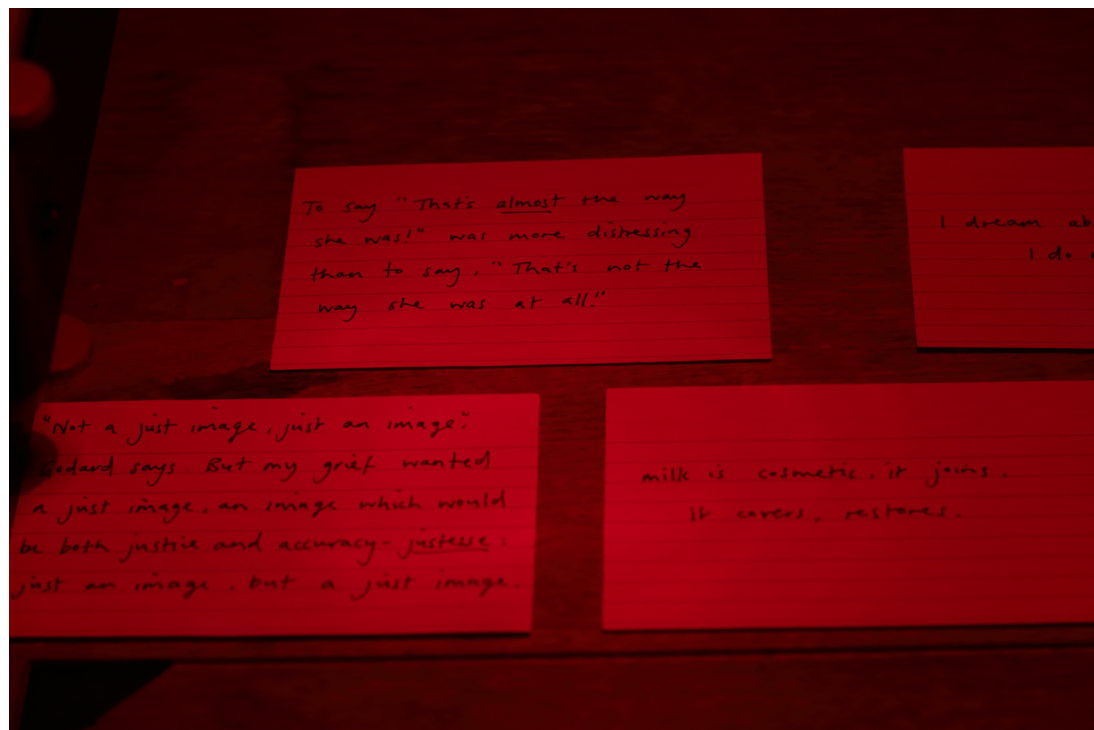 To say "That's almost the way
she was!" was more distressing
than to say, "That's not the
way she was at all."
I dream ab
I do
"Not a just image, just an image,"
Godard says. But my grief wanted
a just image, an image which would
be both justice and accuracy - justesse:
just an image, but a just image.
milk is cosmetic, it joins,
it covers, restores.